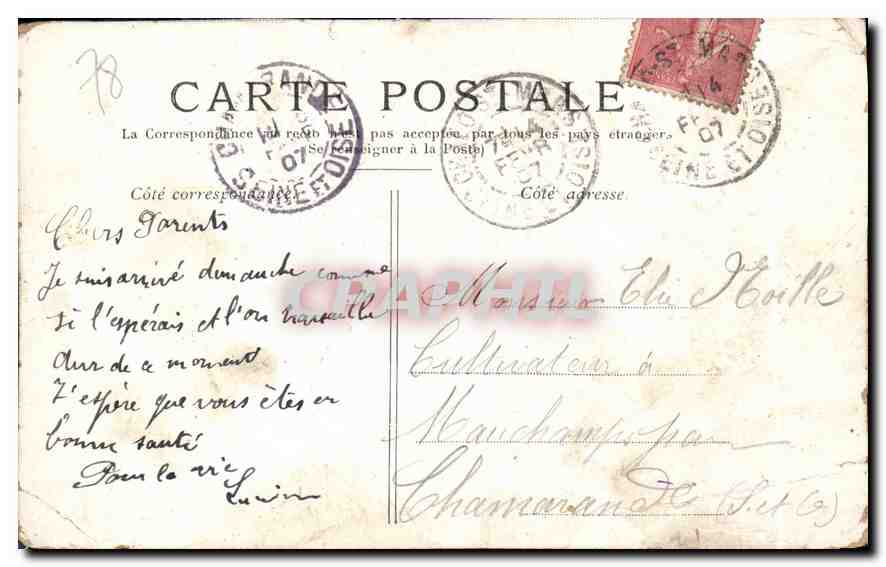 78
CARTE POSTALE
La Correspondance au recto n'est pas acceptée par tous les pays étrangers
(Se renseigner à la Poste)
Côté correspondance.
Côté adresse.
Chers Parents
Je suis arrivé dimanche comme
si l'espérais et l'on travaille
dur de ce moment
J'espère que vous êtes en
bonne santé
Pour la vie
Lucien
Monsieur Elie
Cultivateur à
Mauchamps par
Chamarande (S. et O)
SEINE ET OISE
07
FEVR
07
SEINE ET OISE
07
CPAPHIL